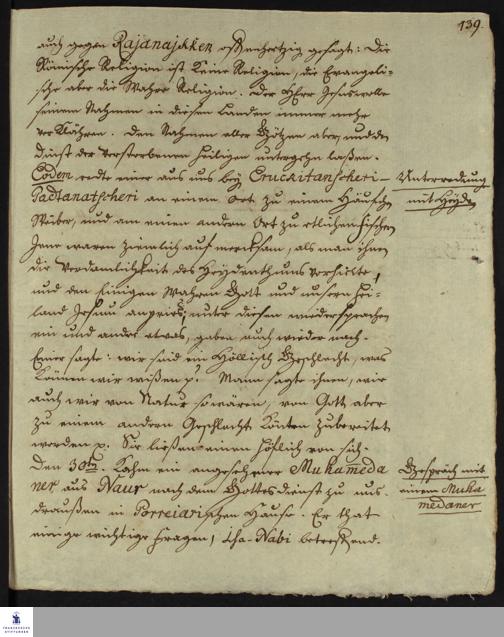 139.
auch gegen Rajanaikken offenhertzig gesagt: Die
Römische Religion ist keine Religion, die Evangeli-
sche aber die Wahre Religion. Der HErr Jesus wolle
seinen Nahmen in diesen Landen immer mehr
verklähren. Den Nahmen aller Götzen aber, und den
Dienst der verstorbenen Heiligen untergehn laßen.
Eodem redte einer aus uns bey Erukitantscheri-
Padtanatscheri an einem Ort zu einem Häufchen
Weiber, und am einem andern Ort zu etlichen Fischern
Jene waren ziemlich aufmercksam, als man ihnen
die Verdamlichkeit des Heydenthums vorstellte,
und den Einigen Wahren Gott und unsern Hei-
land Jesum anpries; unter diesen wiedersprachen
ein und andre etwas, gaben auch wieder nach.
Einer sagte: wir sind ein Höllisch Geschlecht, was
können wir wißen p? Mann sagte ihnen, wie
auch wir von Natur so wären, von Gott aber
zu einem andern Geschlecht könten zubereitet
werden p. Sie ließen einen höflich von sich.
Den 30ten. Kahm ein angesehener Muhameda
ner aus Naur nach dem Gottesdienst zu uns.
draußen in Porreiarischen Hause. Er that
einige wichtige Fragen, Isa-Nabi betreffend.
Unterredung
mit Heyden
Gespräch mit
einem Muha
medaner
FRANCKESCHE
STIFTUNGEN